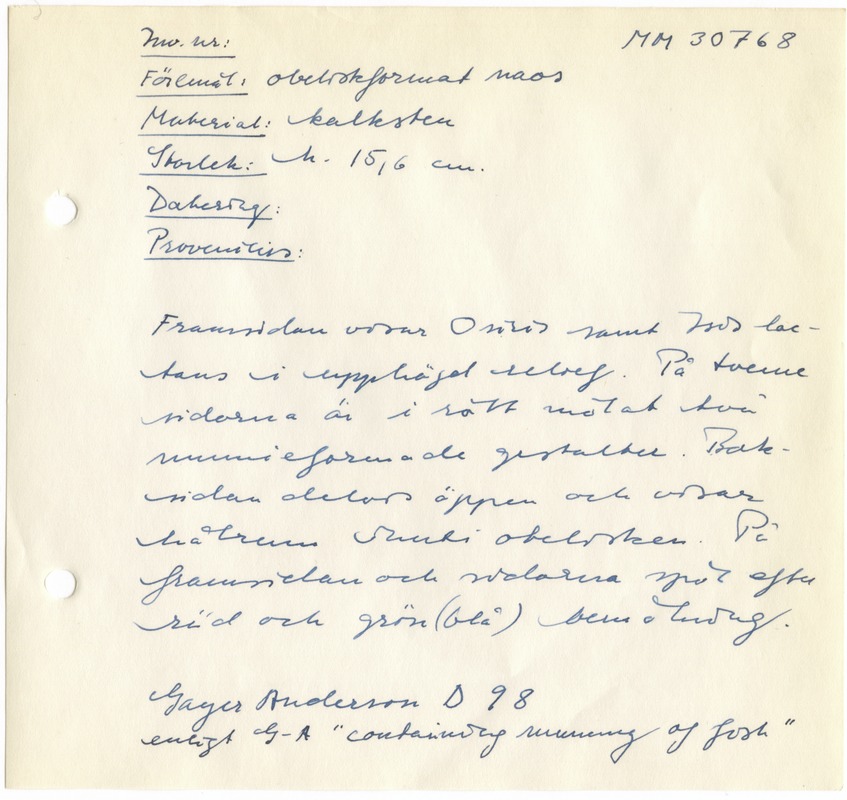 Inv. nr: MM 30768
Föremål: obeliskformat naos
Material: kalksten
Storlek: h. 15,6 cm.
Datering:
Proveniens:
Framsidan visar Osiris samt Isis lac-
tans i upphöjd relief. På tvenne
sidorna är i rött målat två
mumieformade gestalter. Bak-
sidan delvis öppen och visar
hålrum inuti obelisken. På
framsidan och sidorna spår efter
röd och grön (blå) bemålning.
Gayer Anderson D 98
enligt G-A "containing mummy of fish"